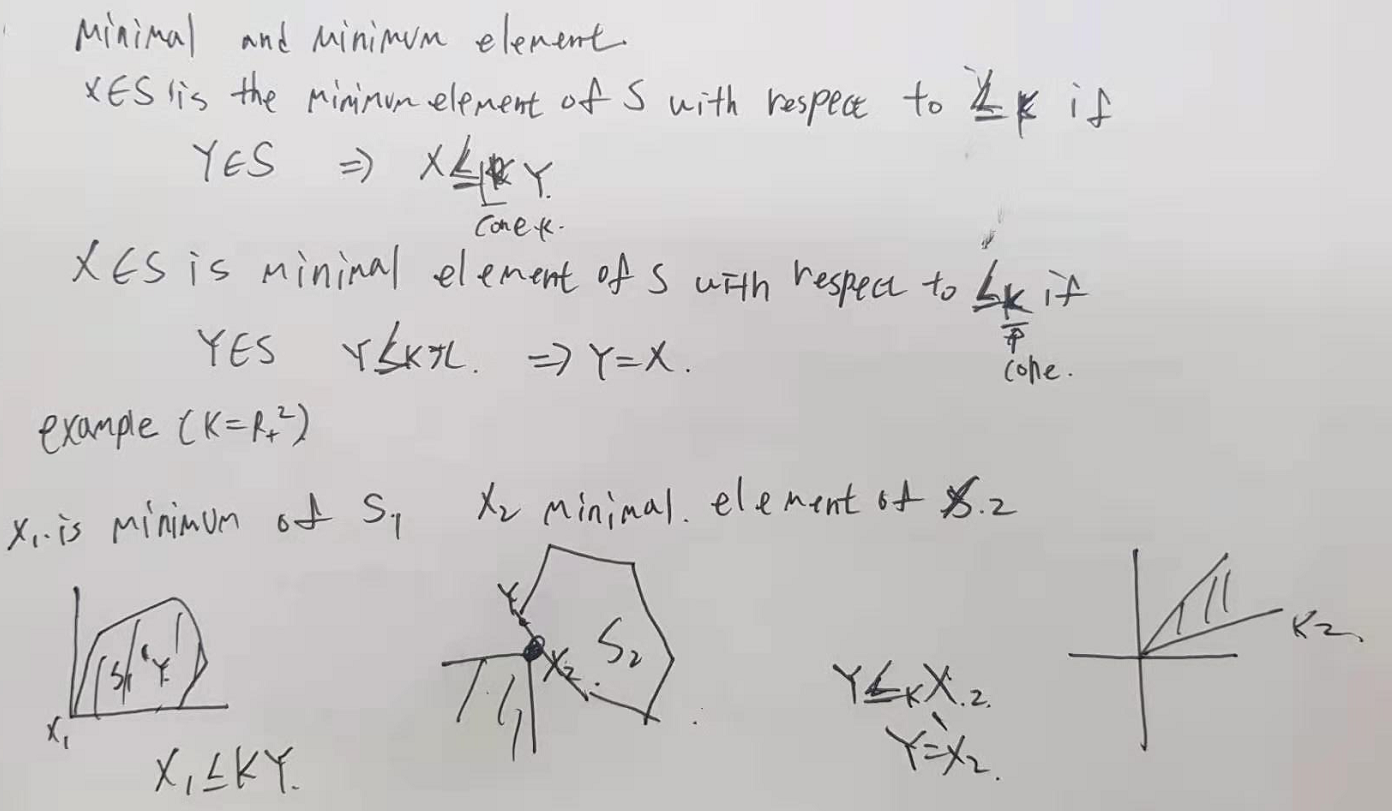 Minimal and minimum element.
X∈S is the minimum element of S with respect to ≤K if
Y∈S ⇒ X≤K Y.
Cone K.
X∈S is minimal element of S with respect to ≤K if
Y∈S Y≤K x. ⇒ Y=X.
cone.
example (K=R₊²)
X₁ is minimum of S₁ X₂ minimal. element of S.2
Y
S₁ Y
X₂
S₂
K₂
X₁
X₁≤KY.
Y≤K X.2.
Y=X₂.